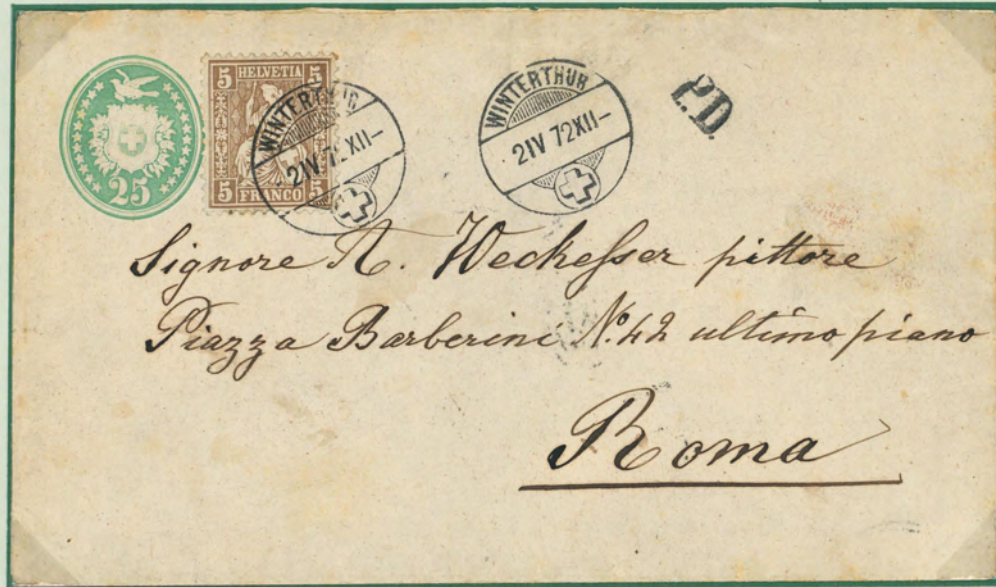 25
5 HELVETIA 5
5 FRANCO 5
WINTERTHUR
2IV 72XII–
WINTERTHUR
2IV 72XII–
P.D.
Signore A. Weckesser pittore
Piazza Barberini No. 42 ultimo piano
Roma